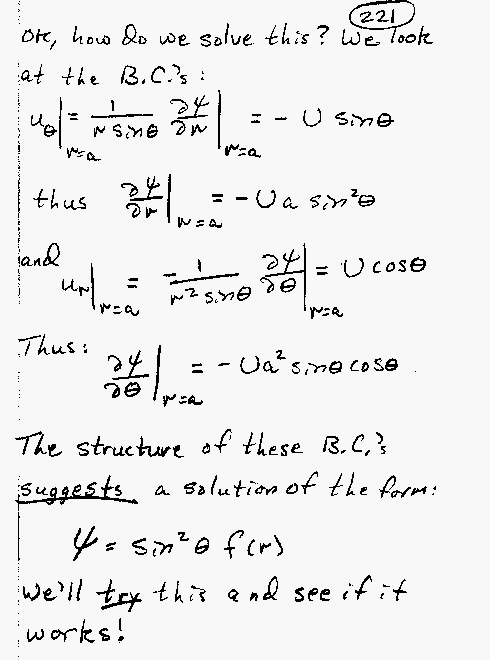 221
OK, how do we solve this? We look
at the B.C.'s:
u_θ|_{r=a} = 1/(r sinθ) ∂ψ/∂r|_{r=a} = - U sinθ
thus ∂ψ/∂r|_{r=a} = - U a sin²θ
and u_r|_{r=a} = - 1/(r² sinθ) ∂ψ/∂θ|_{r=a} = U cosθ
Thus: ∂ψ/∂θ|_{r=a} = - U a² sinθ cosθ
The structure of these B.C.'s
suggests a solution of the form:
ψ = sin²θ f(r)
We'll try this and see if it
works!